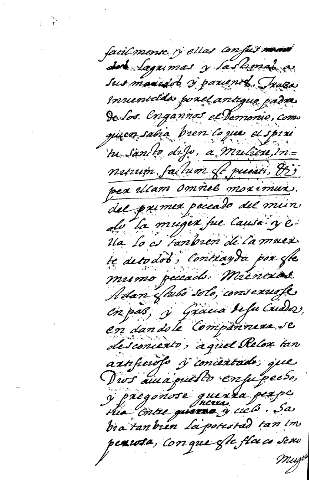 facilmente, y ellas con sus
lagrimas y lastimas a
sus maridos y parientes. Traza
inventada por el antiguo padre
de los Engannos el Demonio, como
quien sabia bien lo que el spiri
tu santo dijo, a Muliere, in-
netium factum est pecati, et
per illam omnes morimur,
del primer peccado del mun
do la muger fue causa y e
lla lo es tanbien de la muer
te de todos, contrayda por este
mismo peccado. Mientras
Adan estubo solo, conservose
en pas, y Gracia de su Criador,
en dandole Compannera se
desconcerto, aquel Relox tan
artificioso y concertado, que
Dios avia puesto en su pecho,
y pregonose guerra perpe
tua entre tierra y cielo. Sa
bia tanbien la potestad tan im
periosa, con que este flaco sexo
Muger